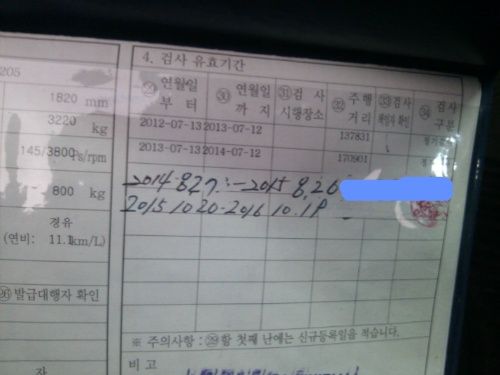 4. 검사 유효기간
205
㉙ 연월일 부터
㉚ 연월일 까지
㉛ 검사 시행장소
㉜ 주행 거리
㉝ 검사
㉞ 검사 구분
1820 mm
3220 kg
145/3800 Ps/rpm
800 kg
경유
(연비: 11.1km/L)
2012-07-13 2013-07-12 137831
2013-07-13 2014-07-12 170901
2014-8.27 ~ 2015 8.26
2015 10 20 - 2016 10. 19
㉖ 발급대행자 확인
※ 주의사항 : ㉙항 첫째 난에는 신규등록일을 적습니다.
비 고
자